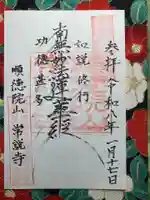 参拝 令和八年一月十七日
如説修行
南無妙法蓮華経
功徳甚多
順徳院山 常説寺